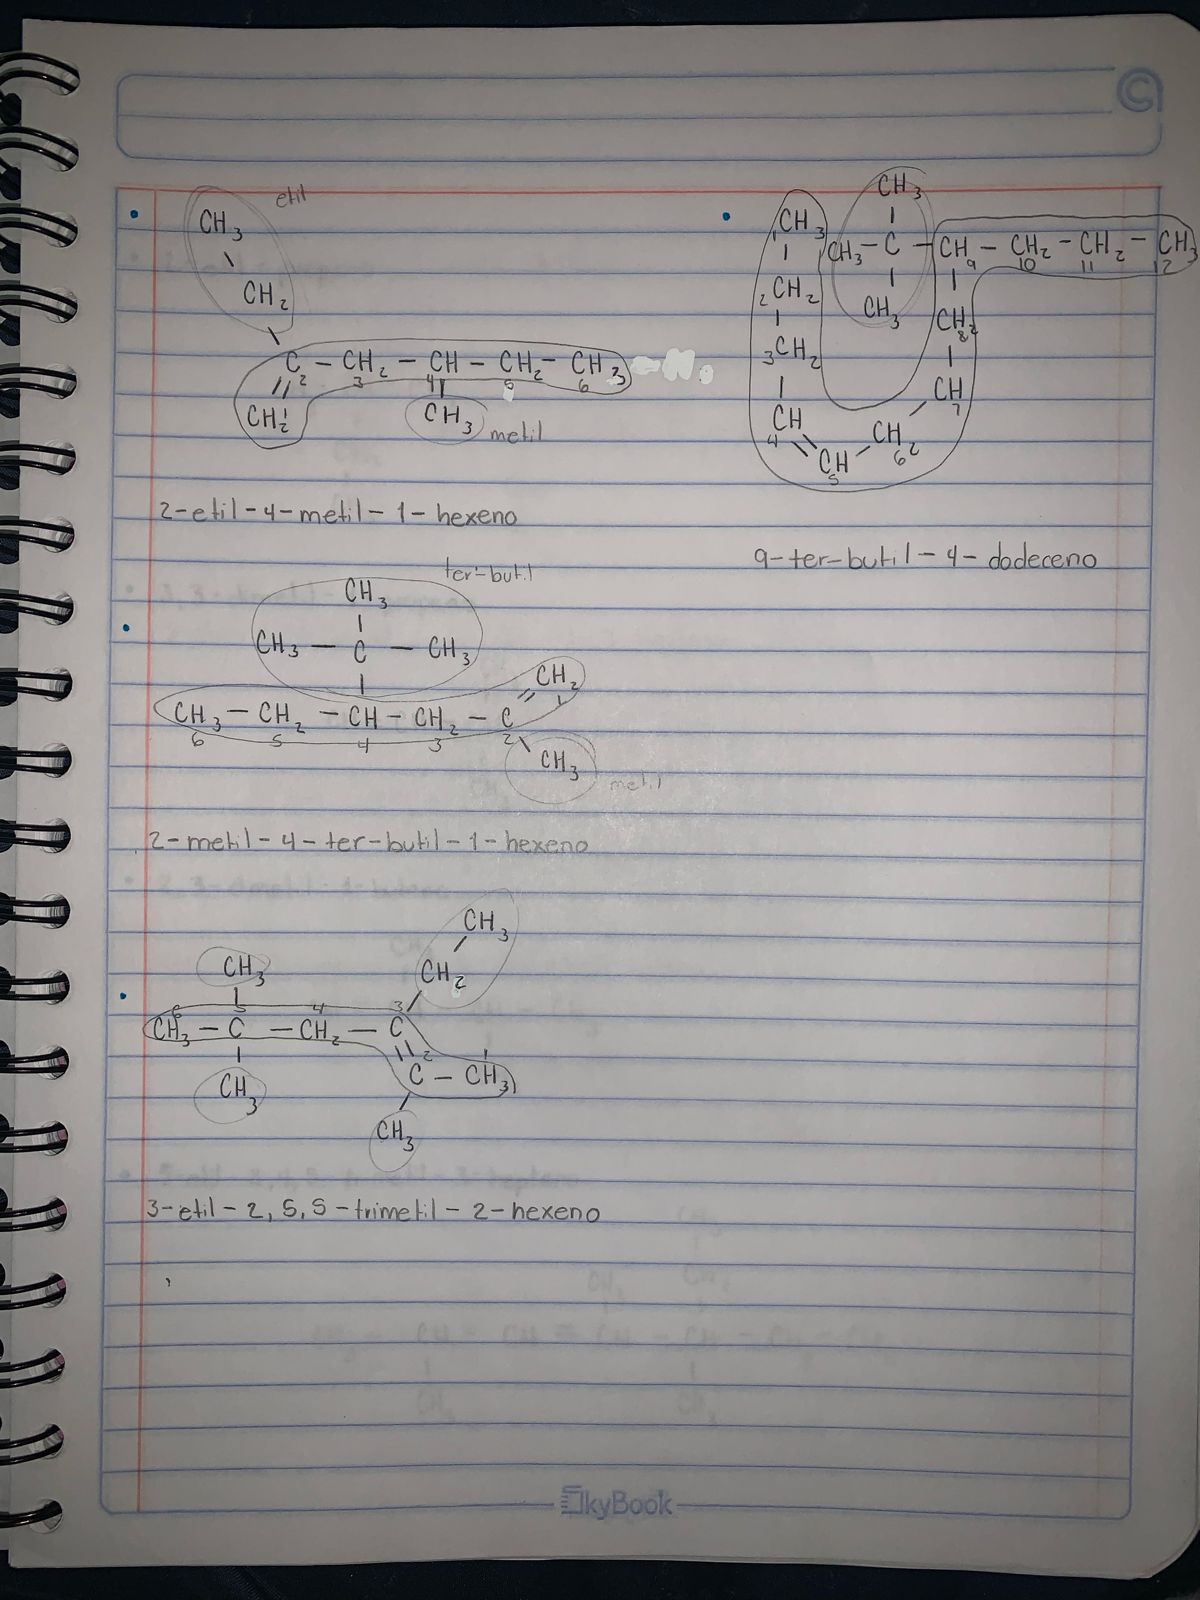 etil
CH3
CH2
C – CH2 – CH – CH2 – CH3
2 3 4 5 6
CH2
1
CH3
metil
2-etil-4-metil-1-hexeno
ter-butil
CH3
CH3 – C – CH3
CH2
1
CH3 – CH2 – CH – CH2 – C
6 5 4 3 2
CH3
metil
2-metil-4-ter-butil-1-hexeno
CH3
CH3
CH2
6 5 4 3
CH3 – C – CH2 – C
2 1
C – CH3
CH3
CH3
3-etil-2,5,5-trimetil-2-hexeno
CH3
1 CH3
CH3 – C – CH – CH2 – CH2 – CH3
9 10 11 12
2 CH2
CH3
CH2
8
3 CH2
CH
7
CH
4
CH2
6
CH
5
9-ter-butil-4-dodeceno
SkyBook